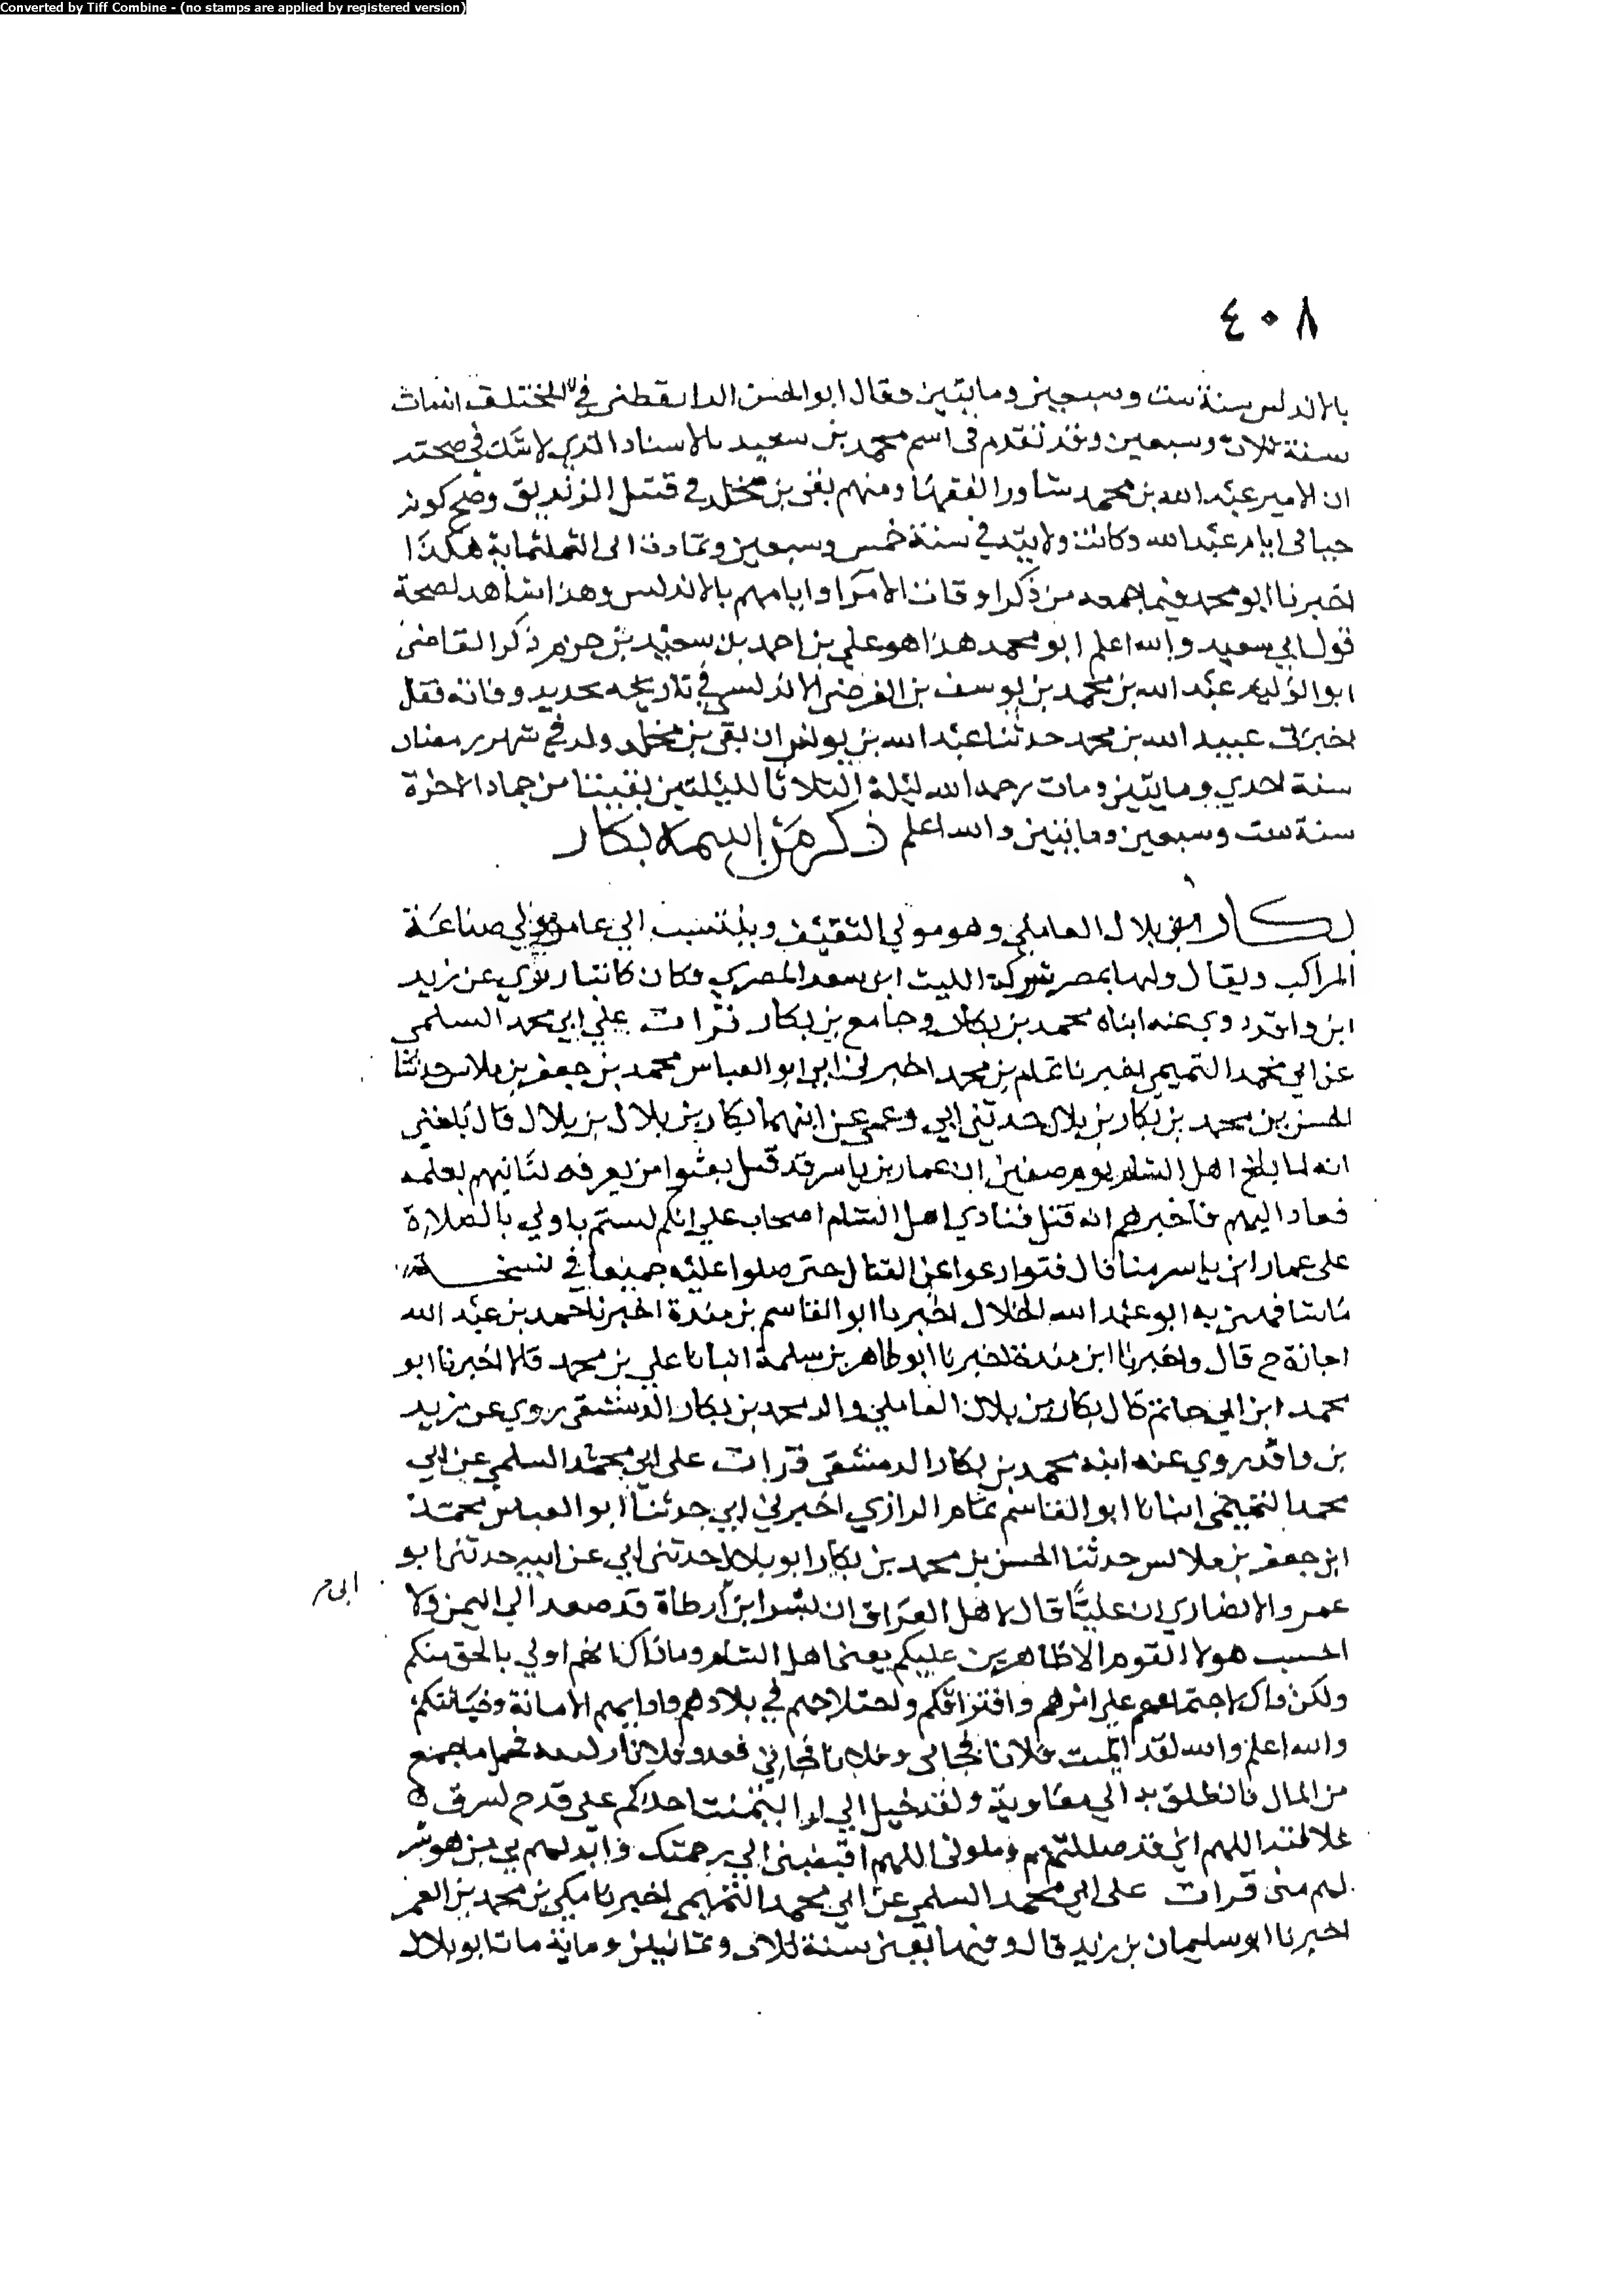 Converted by Tiff Combine - (no stamps are applied by registered version)
٤٠٨
بالاندلس سنة ست وسبعين ومايتين وقال ابو الحسن الدارقطني في المختلف انه مات
سنة ثلاث وسبعين وقد تقدم في اسم محمد بن سعيد بالاسناد الذي لا شك في صحته
ان الامير عبد الله بن محمد شاور الفقها ومنهم بقي بن مخلد في قتل الزنديق وصح كونه
حيا في ايام عبد الله وكانت ولايته في سنة خمس وسبعين وتمادت الى الثلثماية هكذا
اخبرنا ابو محمد فيما جمعه من ذكر اوقات الامرا وايامهم بالاندلس وهذا شاهد لصحة
قول ابي سعيد والله اعلم ابو محمد هذا هو علي بن احمد بن سعيد بن حزم ذكر القاضي
ابو الوليد عبد الله بن محمد بن يوسف بن الفرضي الاندلسي في تاريخه تحديد وفاته فقال
اخبرني عبيد الله بن محمد حدثنا عبد الله بن يونس ان بقي بن مخلد ولد في شهر رمضان
سنة احدي ومايتين ومات رحمه الله ليلة الثلاثا لليلتين بقيتا من جماد الاخرة
سنة ست وسبعين ومايتين والله اعلم ذكر من اسمه بكار
بكار بن بلال العاملي وهو مولي لثقيف وينتسب الي عاملة ولي صناعة
المراكب ويقال ولها بمصر شركة الليث ابن سعد المصري وكان كاتبا روي عن زيد
ابن واقد روي عنه ابناه محمد بن بكار وجامع بن بكار قرات علي ابي محمد السلمي
عن ابي محمد التميمي اخبرنا تمام بن محمد اخبرني ابي ابو العباس محمد بن جعفر بن ملاس حدثنا
الحسن بن محمد بن بكار بن بلال حدثني ابي وعمي عن ابيهما بكار بن بلال بن بلال قال بلغني
انه لما بلغ اهل الشام يوم صفين ان عمار بن ياسر قد قتل بعثوا من يعرفه لياتيهم بعلمه
فعاد اليهم فاخبرهم انه قتل فنادي اهل الشام اصحاب علي انكم لستم باولي بالصلاة
على عمار ابن ياسر منا قال فتوادعوا عن القتال حتى صلوا عليه جميعا في نسخة
ما شافهني به ابو عبد الله الخلال اخبرنا ابو القاسم بن مندة اخبرنا حمد بن عبد الله
اجازة ح قال واخبرنا ابن مندة اخبرنا ابو طاهر بن سلمة انبانا علي بن محمد قالا اخبرنا ابو
محمد ابن ابي حاتم قال بكار بن بلال العاملي والد محمد بن بكار الدمشقي روي عن زيد
بن واقد روي عنه ابنه محمد بن بكار الدمشقي قرات على ابي محمد السلمي عن ابي
محمد التميمي انبانا ابو القاسم تمام الرازي اخبرني ابي حدثنا ابو العباس محمد
ابن جعفر بن ملاس حدثنا الحسن بن محمد بن بكار ابو بلال حدثني ابي عن ابيه حدثني ابو
عمرو الانصاري ان عليا قال لاهل العراق ان بسر ابن ارطاة قد صعد الي اليمن ولا
احسب هولا القوم الا ظاهرين عليكم يعني اهل الشام وما ذاك انهم اولي بالحق منكم
ولكن ذاك لاجتماعهم على امرهم وافتراقكم واصلاحهم في بلادهم واداييهم الامانة وخيانتكم
والله اعلم والله لقد ايتمنت فلانا فخانى وفلانا فخانني فحمل ما جمع
من المال فانطلق به الي معاوية ولقد خيل الي لو ايتمنت احدكم على قدح لسرق
علاقته اللهم اني قد مللتهم وملوني اللهم اقبضني الي رحمتك وابدلهم بي من هو شر
لهم مني قرات على ابي محمد السلمي عن ابي محمد التميمي اخبرنا مكي بن محمد بن الغمر
اخبرنا ابو سليمان بن زيد قال وفيها يعني سنة ثلاث وثمانين وماية مات ابو بلال